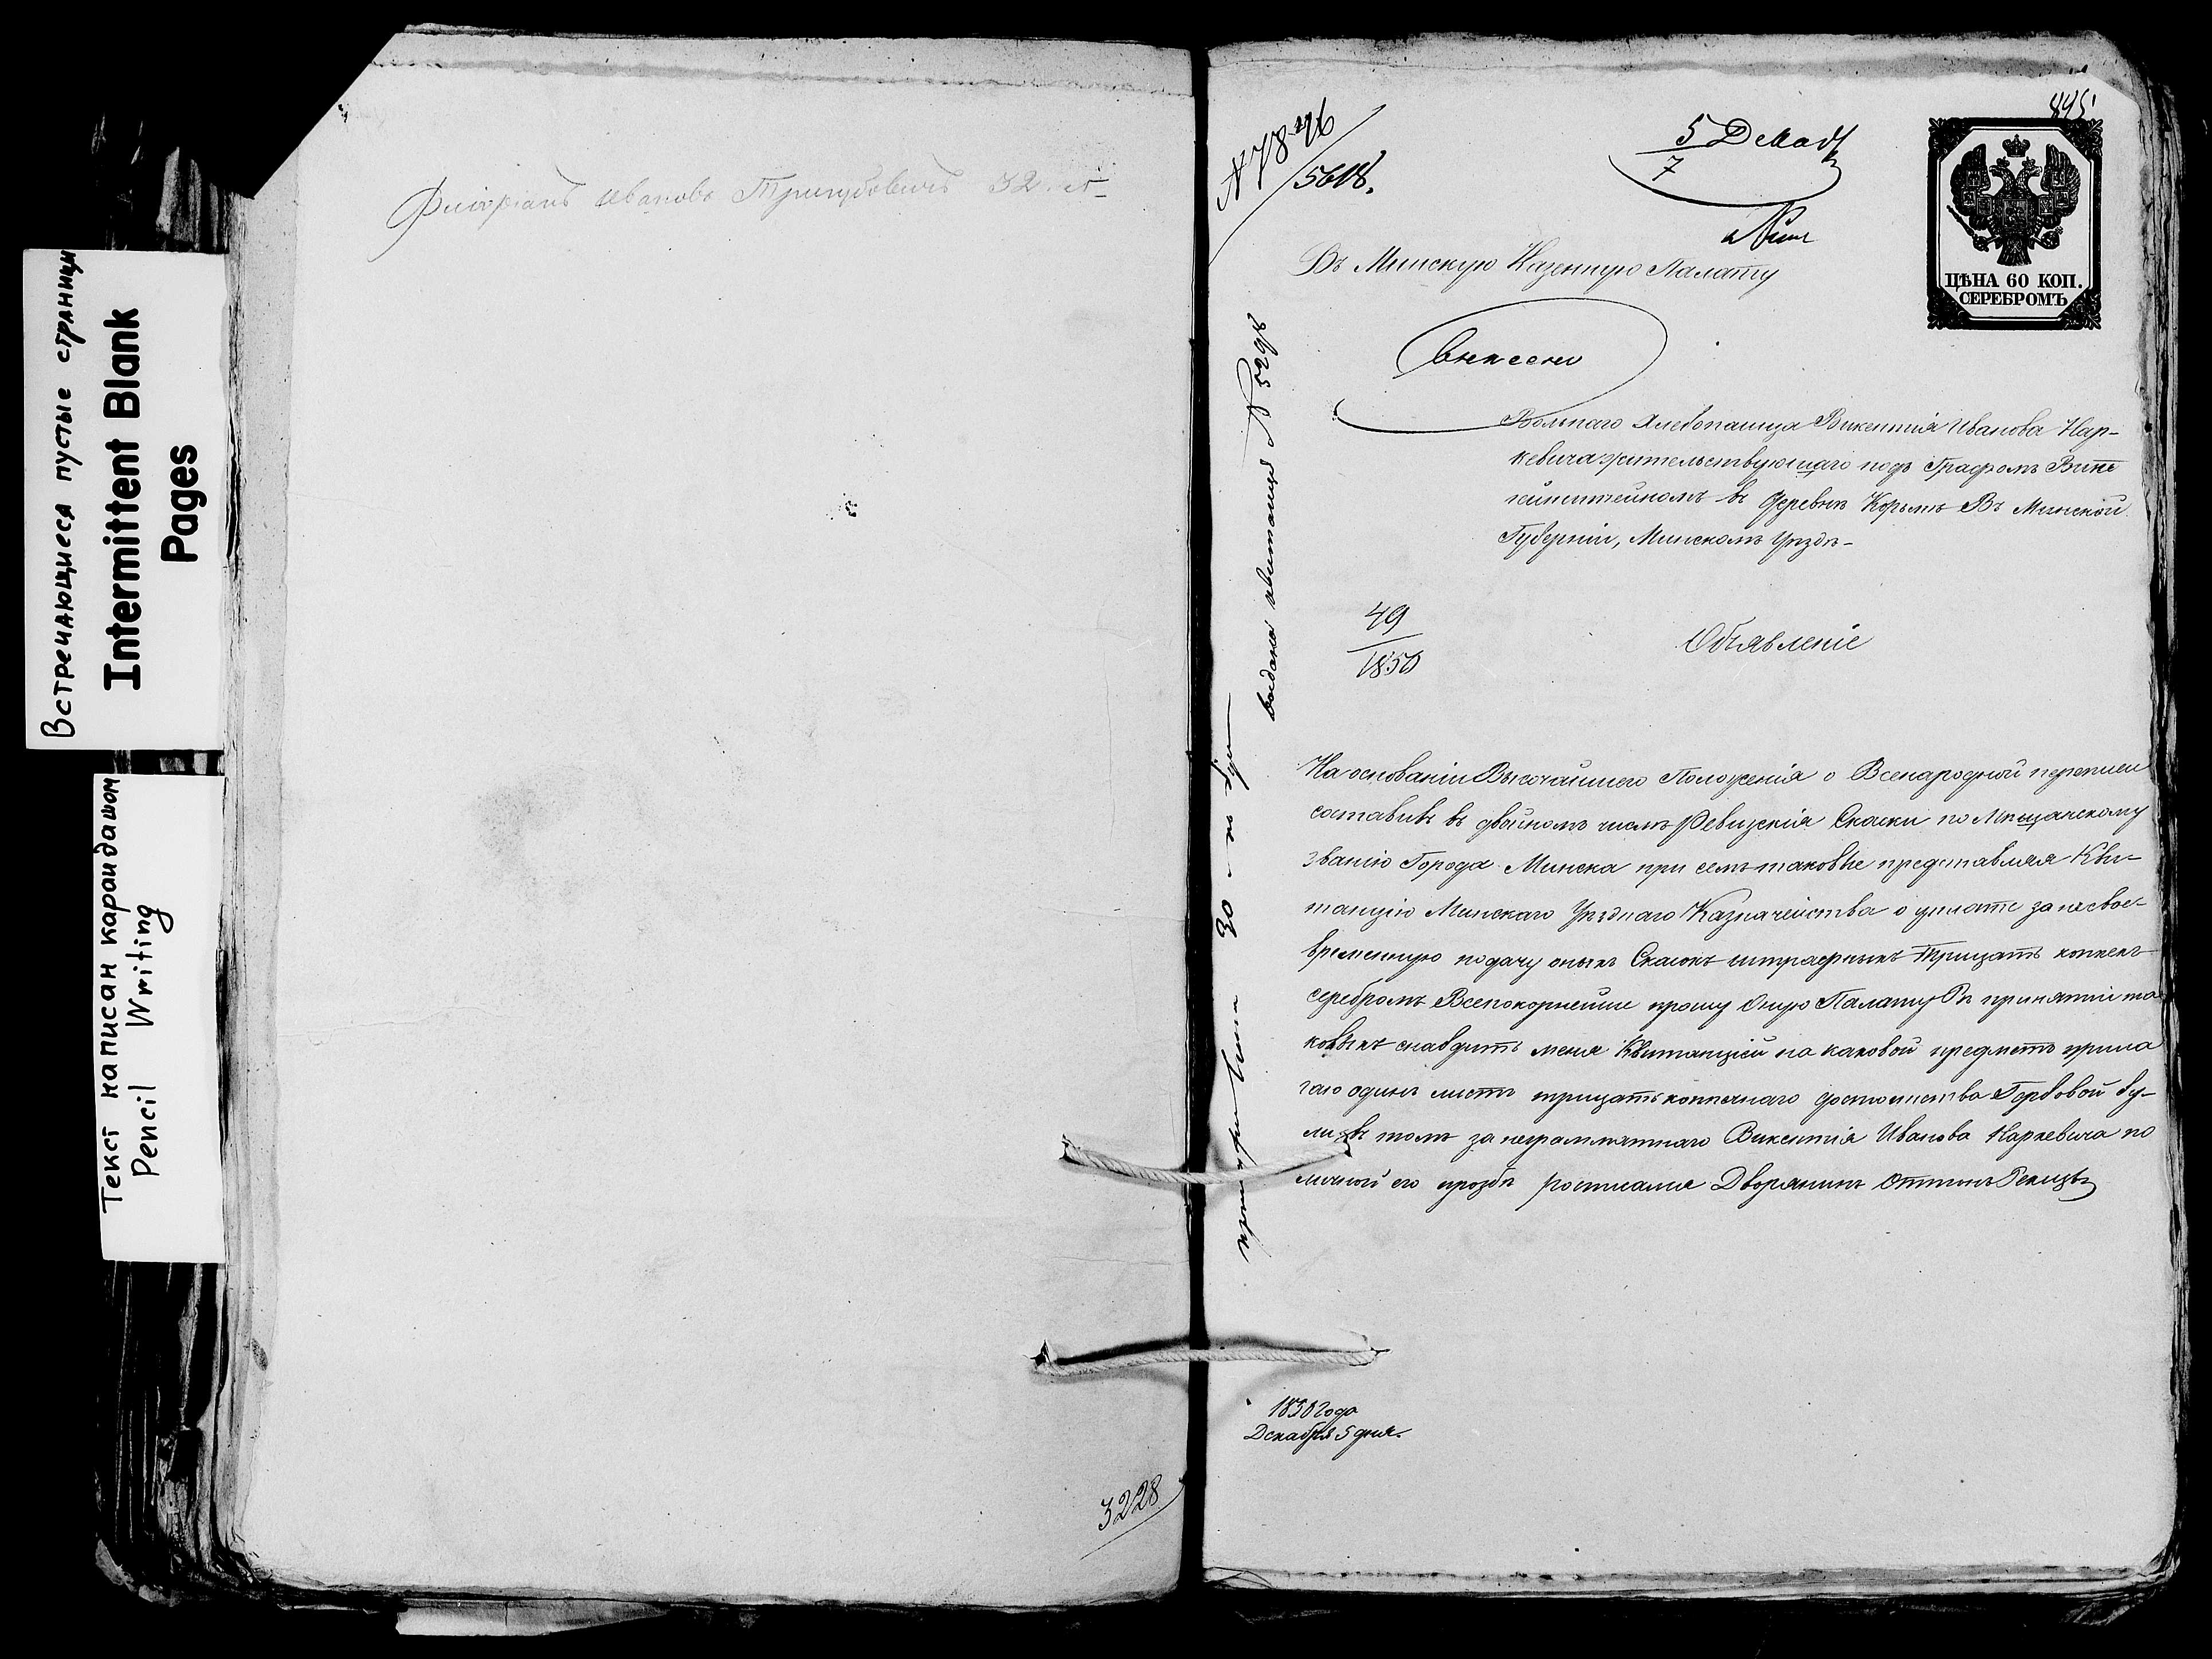 Встречающиеся пустые страницы
Intermittent Blank
Pages
Текст написан карандашом
Pencil Writing
Иванов 32
3228
5618.
5
7
445
ЦѢНА 60 КОП.
СЕРЕБРОМЪ
Въ Минскую Казенную Палату
выдана квитанція № 5298
Вольнаго Хлебопашца Викентія Иванова Кар-
кевича жительствующаго подъ Графомъ Витг
гейнштейномъ въ деревнѣ Въ Минской
Губерніи, Минскомъ Уѣздѣ-
49
1850
Объявленіе
На основаніи Высочайшего Положенія о Всенародной переписи
составивъ въ двойномъ числѣ Ревизскія Сказки по Мѣщанскому
званію Города Минска при семъ таковые представляя Кви-
танцію Минскаго Уѣзднаго Казначейства о уплате за несвое-
временную подачу оныхъ Сказокъ штрафныхъ Трицать копѣекъ
серебромъ Всепокорнейше прошу Оную Палату Въ принятіи та
ковыхъ снабдить меня Квитанціей на каковой предметъ прила
гаю одинъ листъ трицатькопѣечнаго достоинства Гербовой бу-
маги въ томъ за неграммятнаго Викентія Иванова Каркевича по
личной его прозбѣ росписался Дворянинъ
1850 Года
Декабря 5 дня.